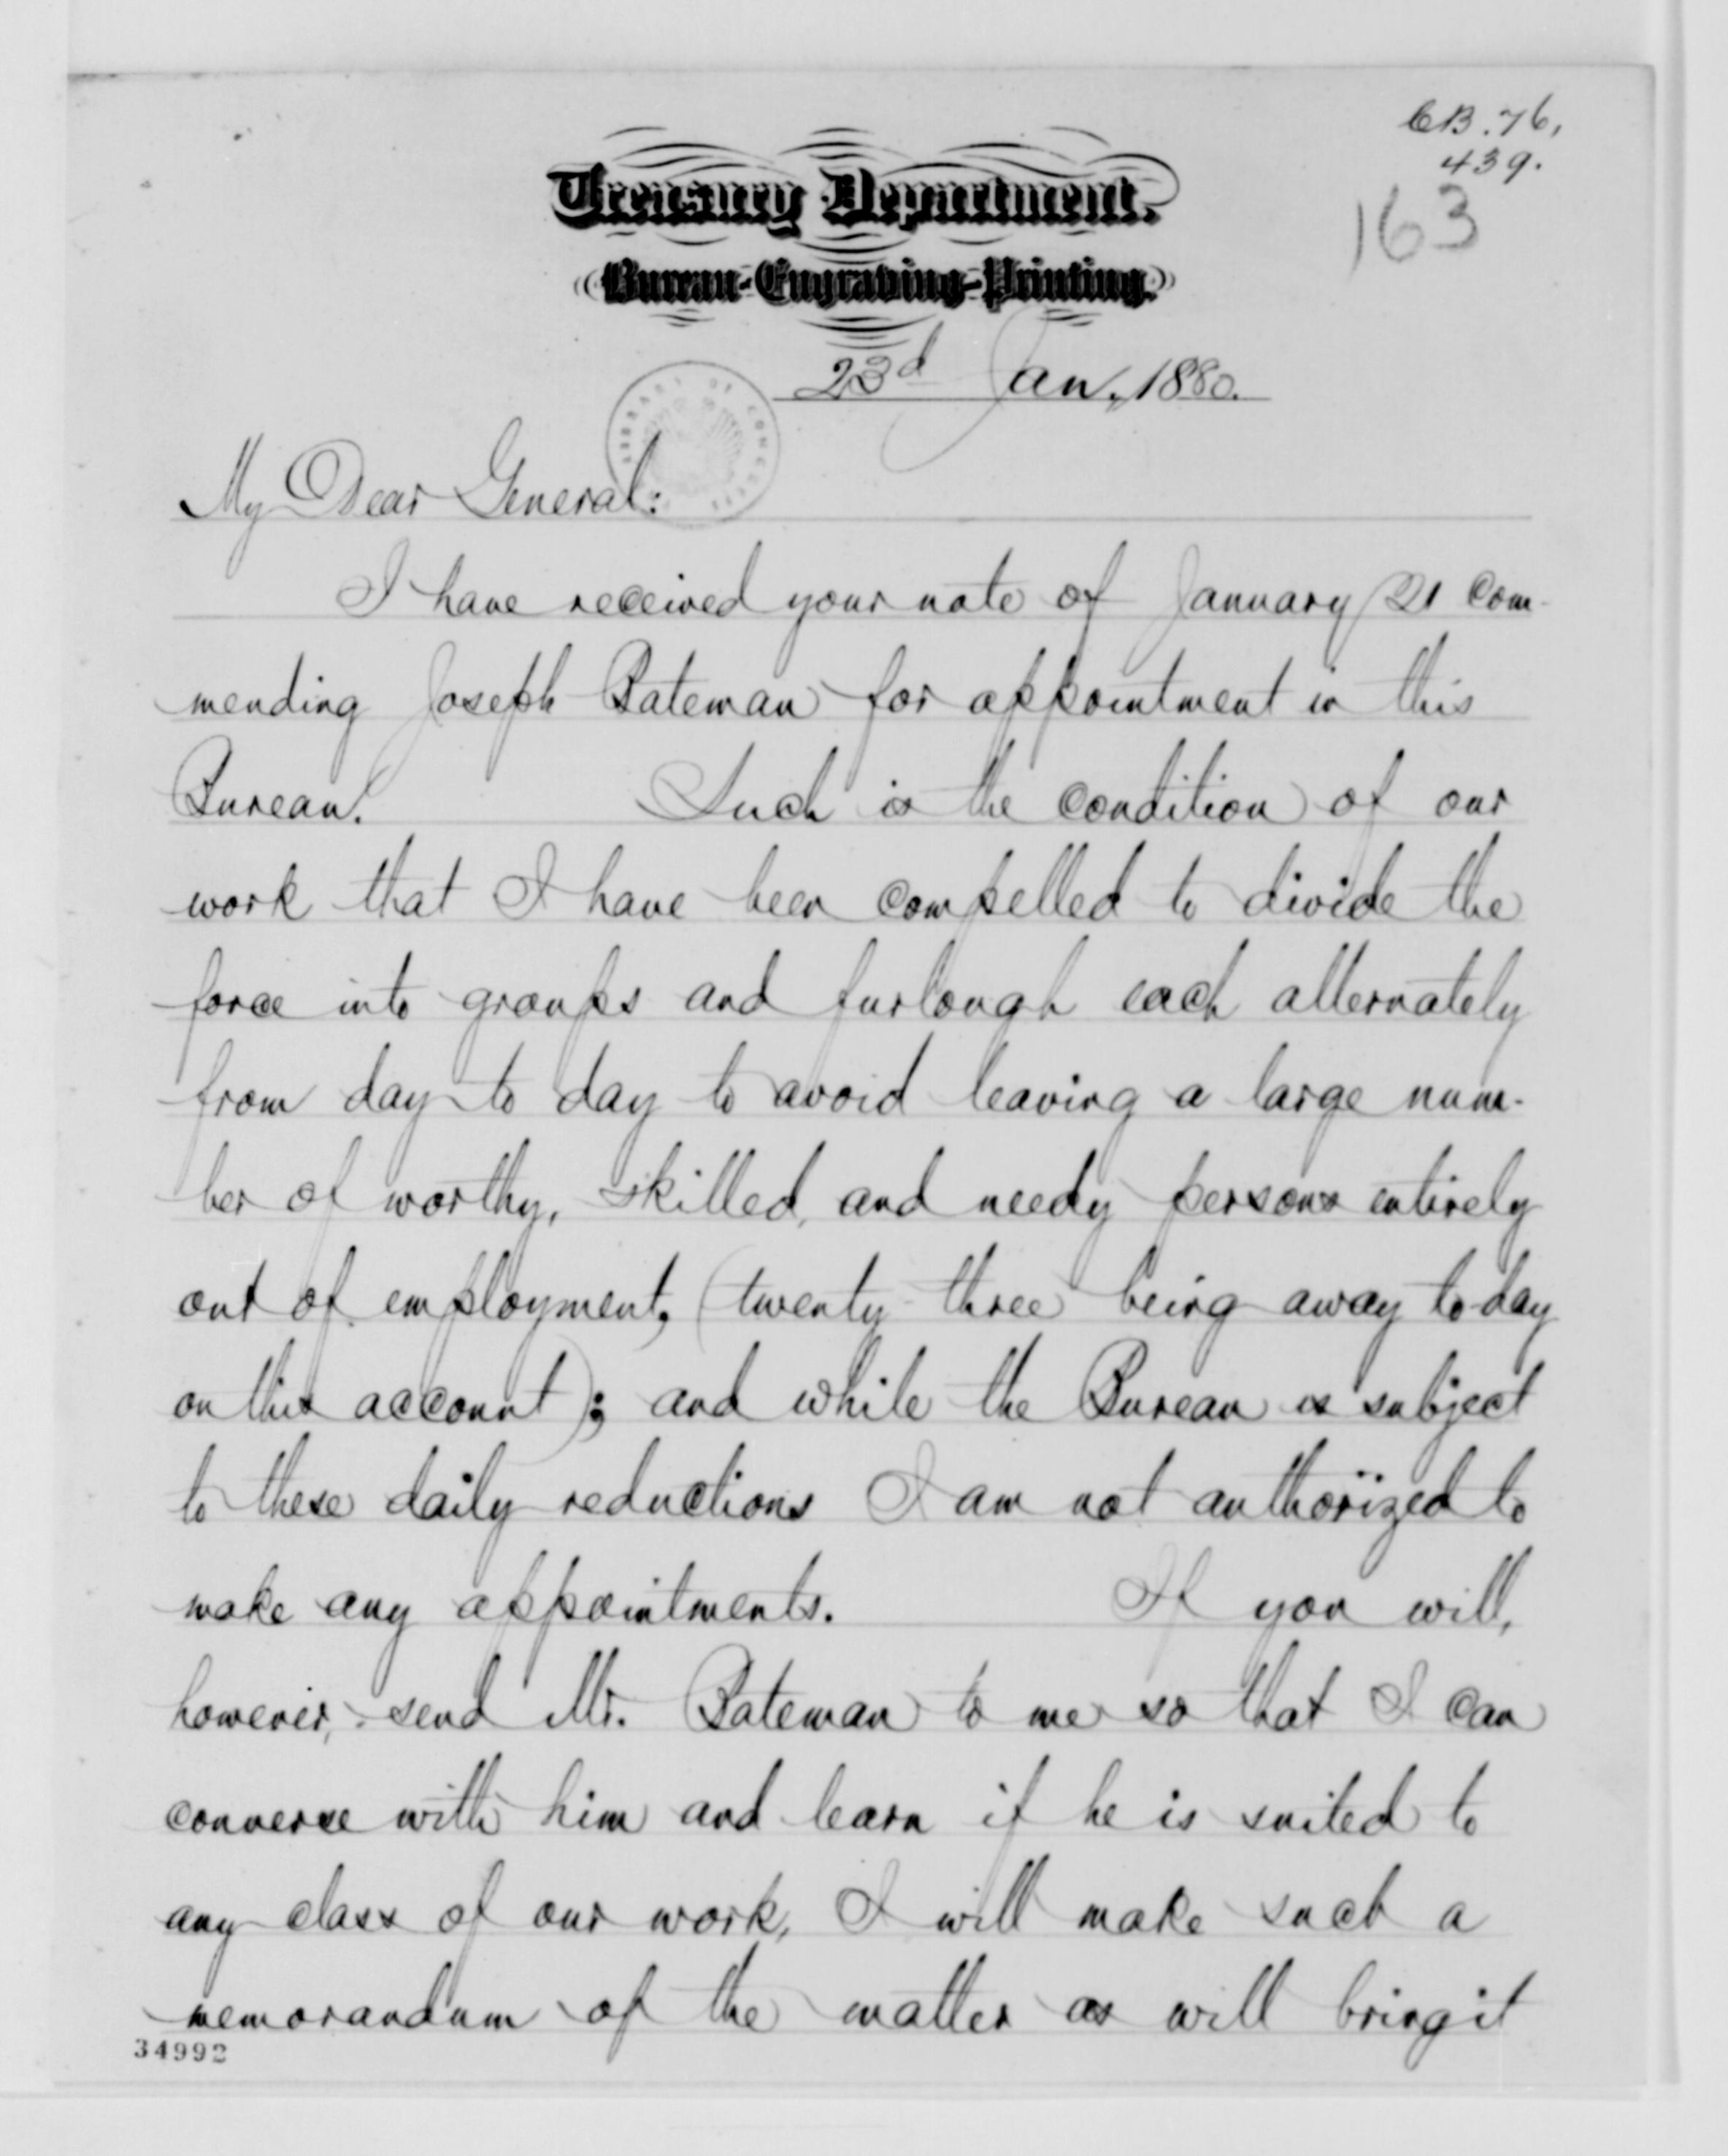 CB. 76,
439.
163
Treasury Department.
(Bureau-Engraving-Printing.)
23d Jan., 1880.
LIBRARY OF CONGRESS
My Dear General:
I have received your note of January 21 com-
mending Joseph Bateman for appointment in this
Bureau. Such is the condition of our
work that I have been compelled to divide the
force into groups and furlough each alternately
from day to day to avoid leaving a large num-
ber of worthy, skilled, and needy persons entirely
out of employment, (twenty three being away to-day
on this account); and while the Bureau is subject
to these daily reductions I am not authorized to
make any appointments. If you will,
however, send Mr. Bateman to me so that I can
converse with him and learn if he is suited to
any class of our work, I will make such a
memorandum of the matter as will bring it
34992